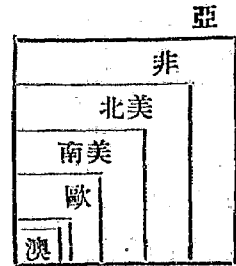 亞
非
北美
南美
歐
澳